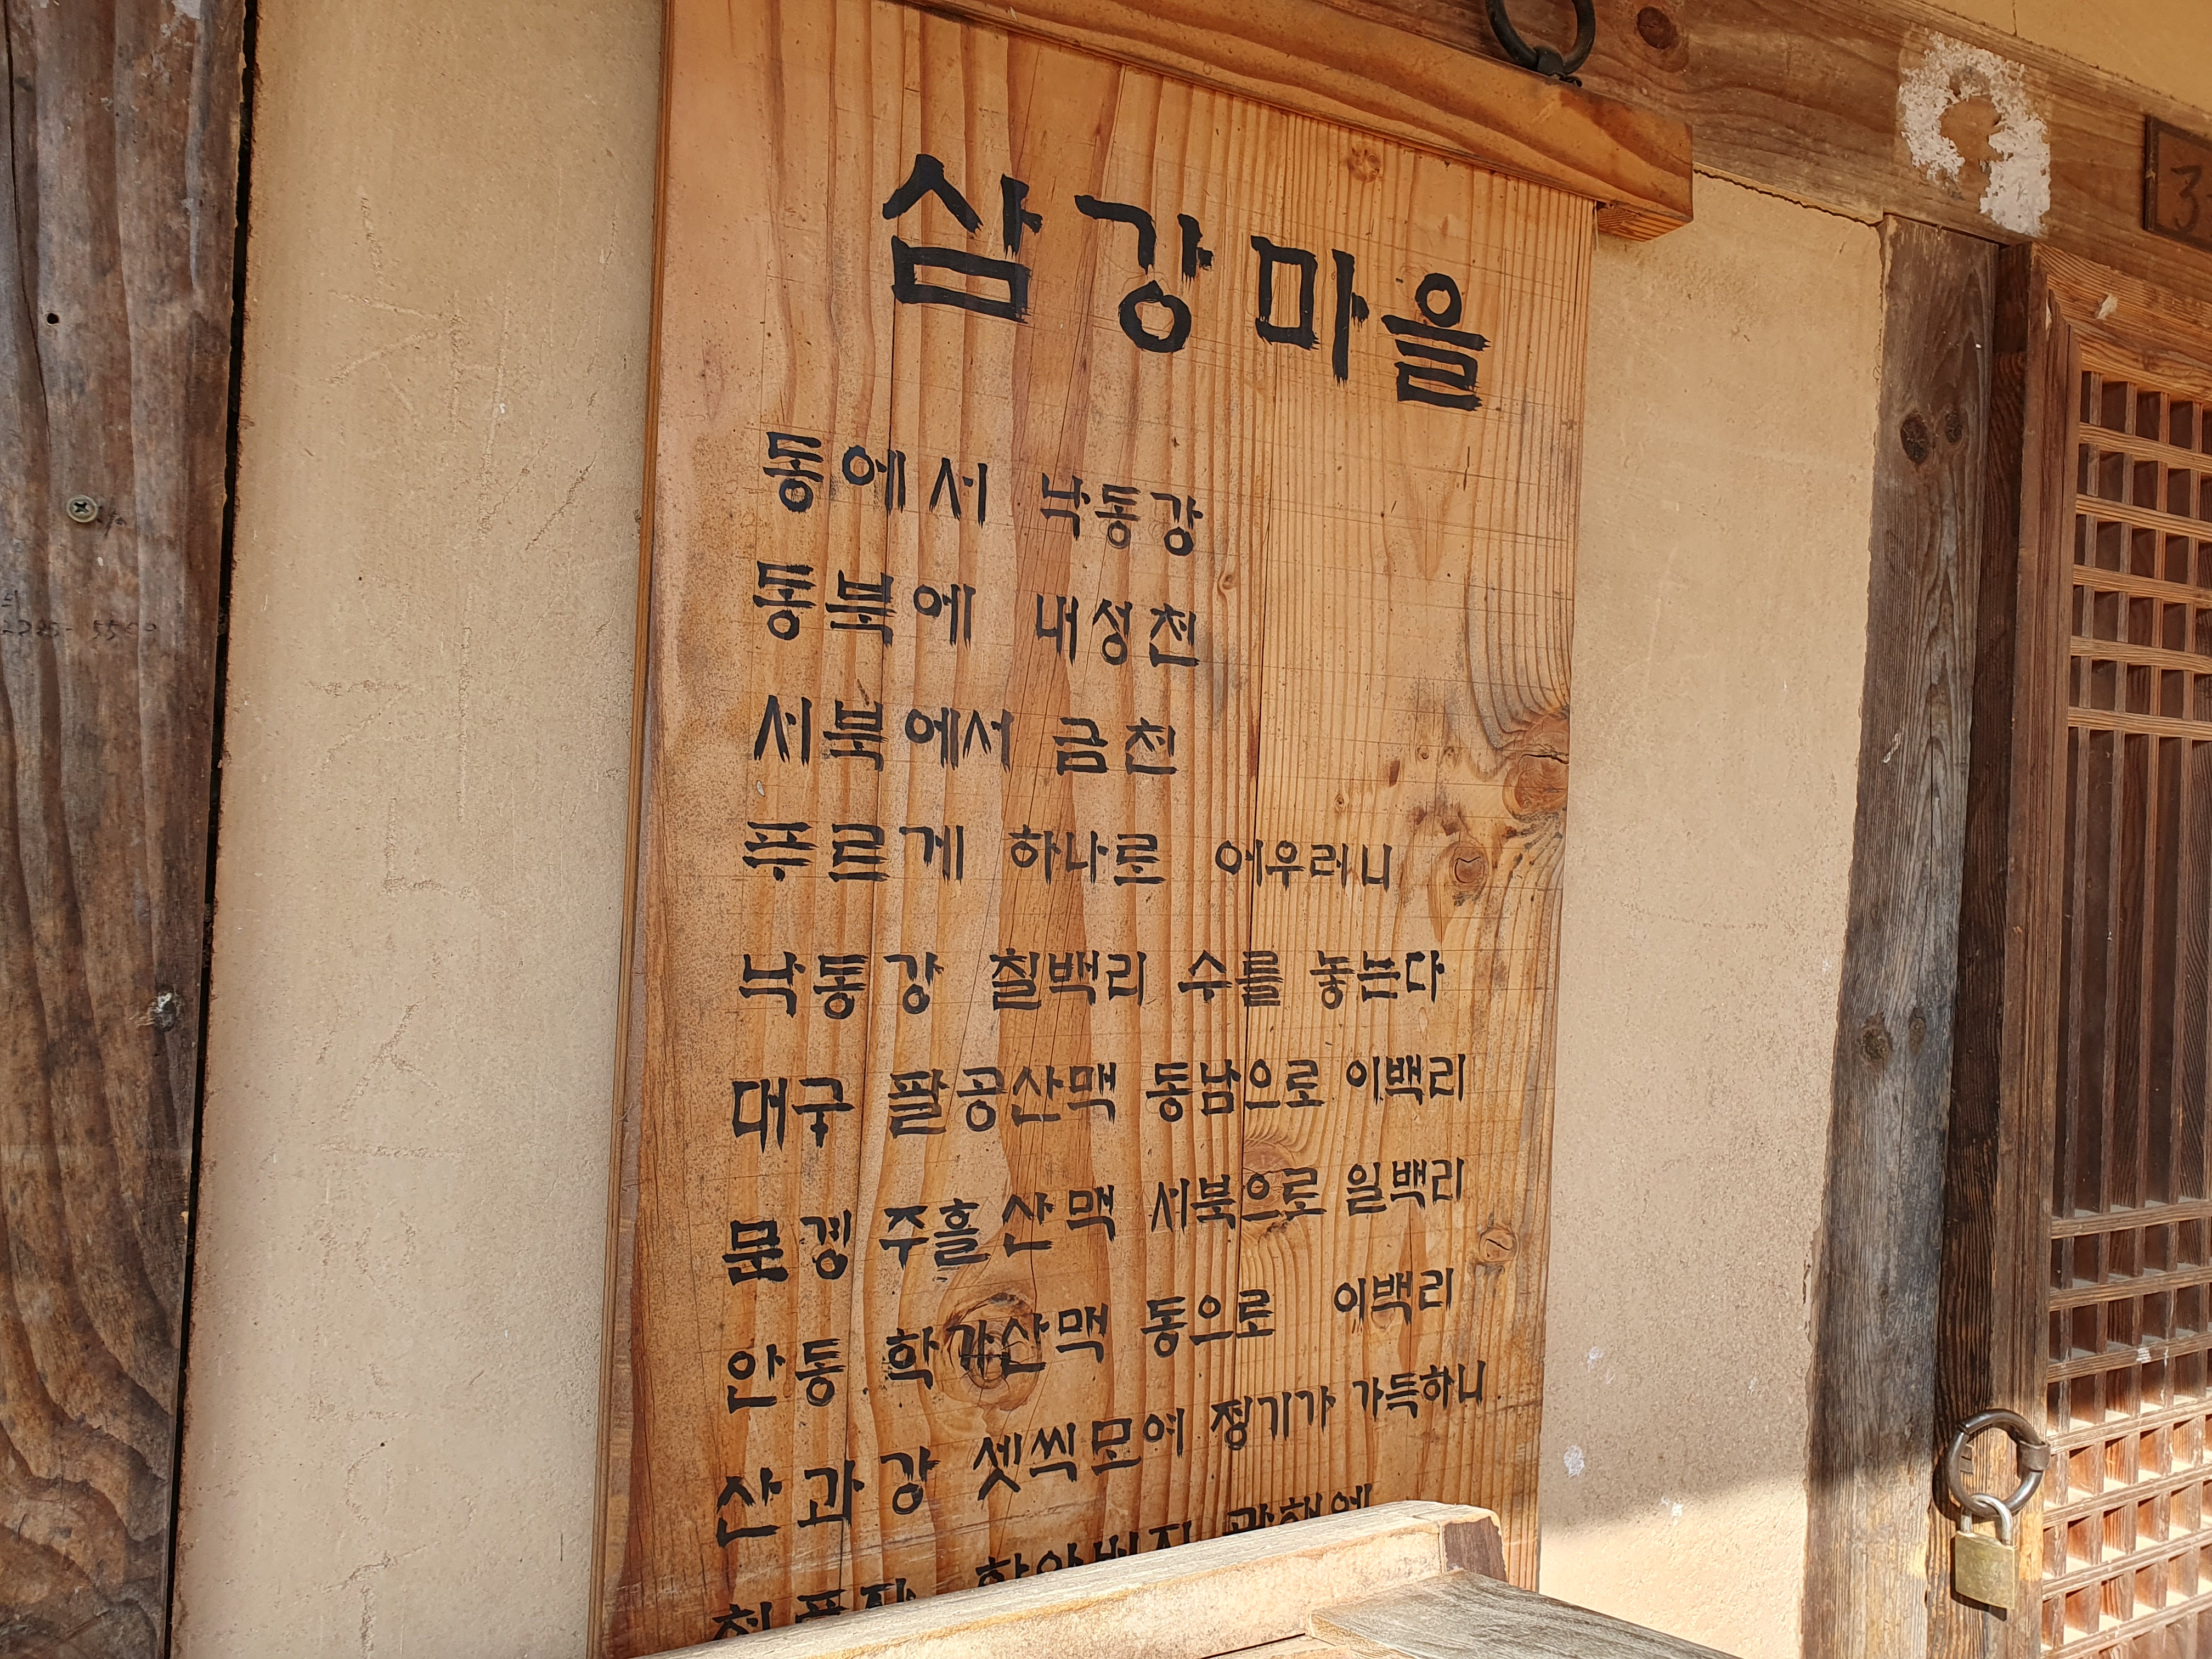 삼강마을
동에서 낙동강
동북에 내성천
서북에서 금천
푸르게 하나로 어우러니
낙동강 칠백리 수를 놓는다
대구 팔공산맥 동남으로 이백리
문경 주흘산맥 서북으로 일백리
안동 학가산맥 동으로 이백리
산과강 셋씩모여 정기가 가득하니
3